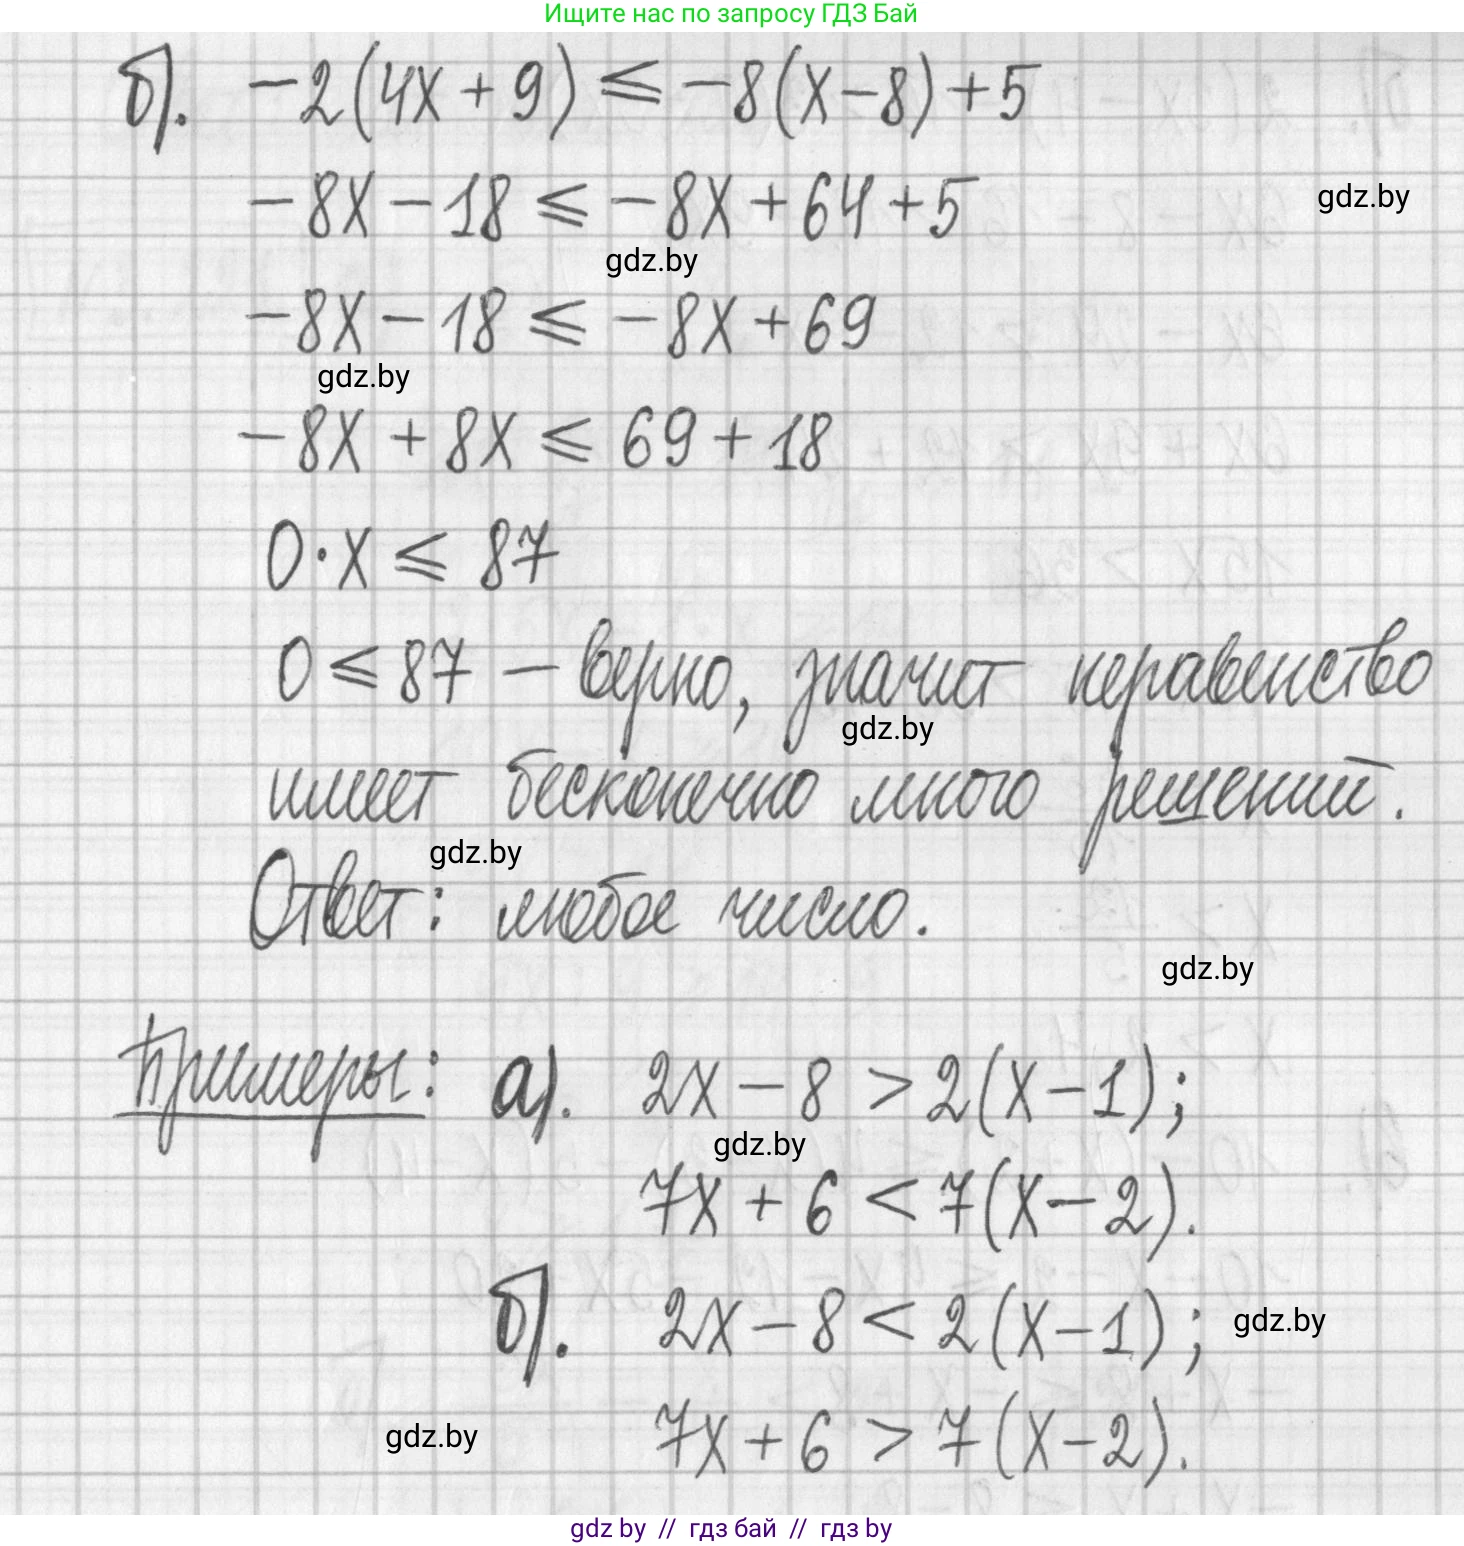 Ищите нас по запросу ГДЗ Бай
б). -2(4x+9) ⩽ -8(x-8)+5
-8x-18 ⩽ -8x+64+5
gdz.by
gdz.by
-8x-18 ⩽ -8x+69
gdz.by
-8x+8x ⩽ 69+18
0·x ⩽ 87
0 ⩽ 87 – верно, значит неравенство
gdz.by
имеет бесконечно много решений.
gdz.by
Ответ: любое число.
gdz.by
Примеры: а). 2x-8 > 2(x-1);
gdz.by
7x+6 < 7(x-2).
б). 2x-8 < 2(x-1);
gdz.by
7x+6 > 7(x-2).
gdz.by
gdz by // гдз бай // гдз by